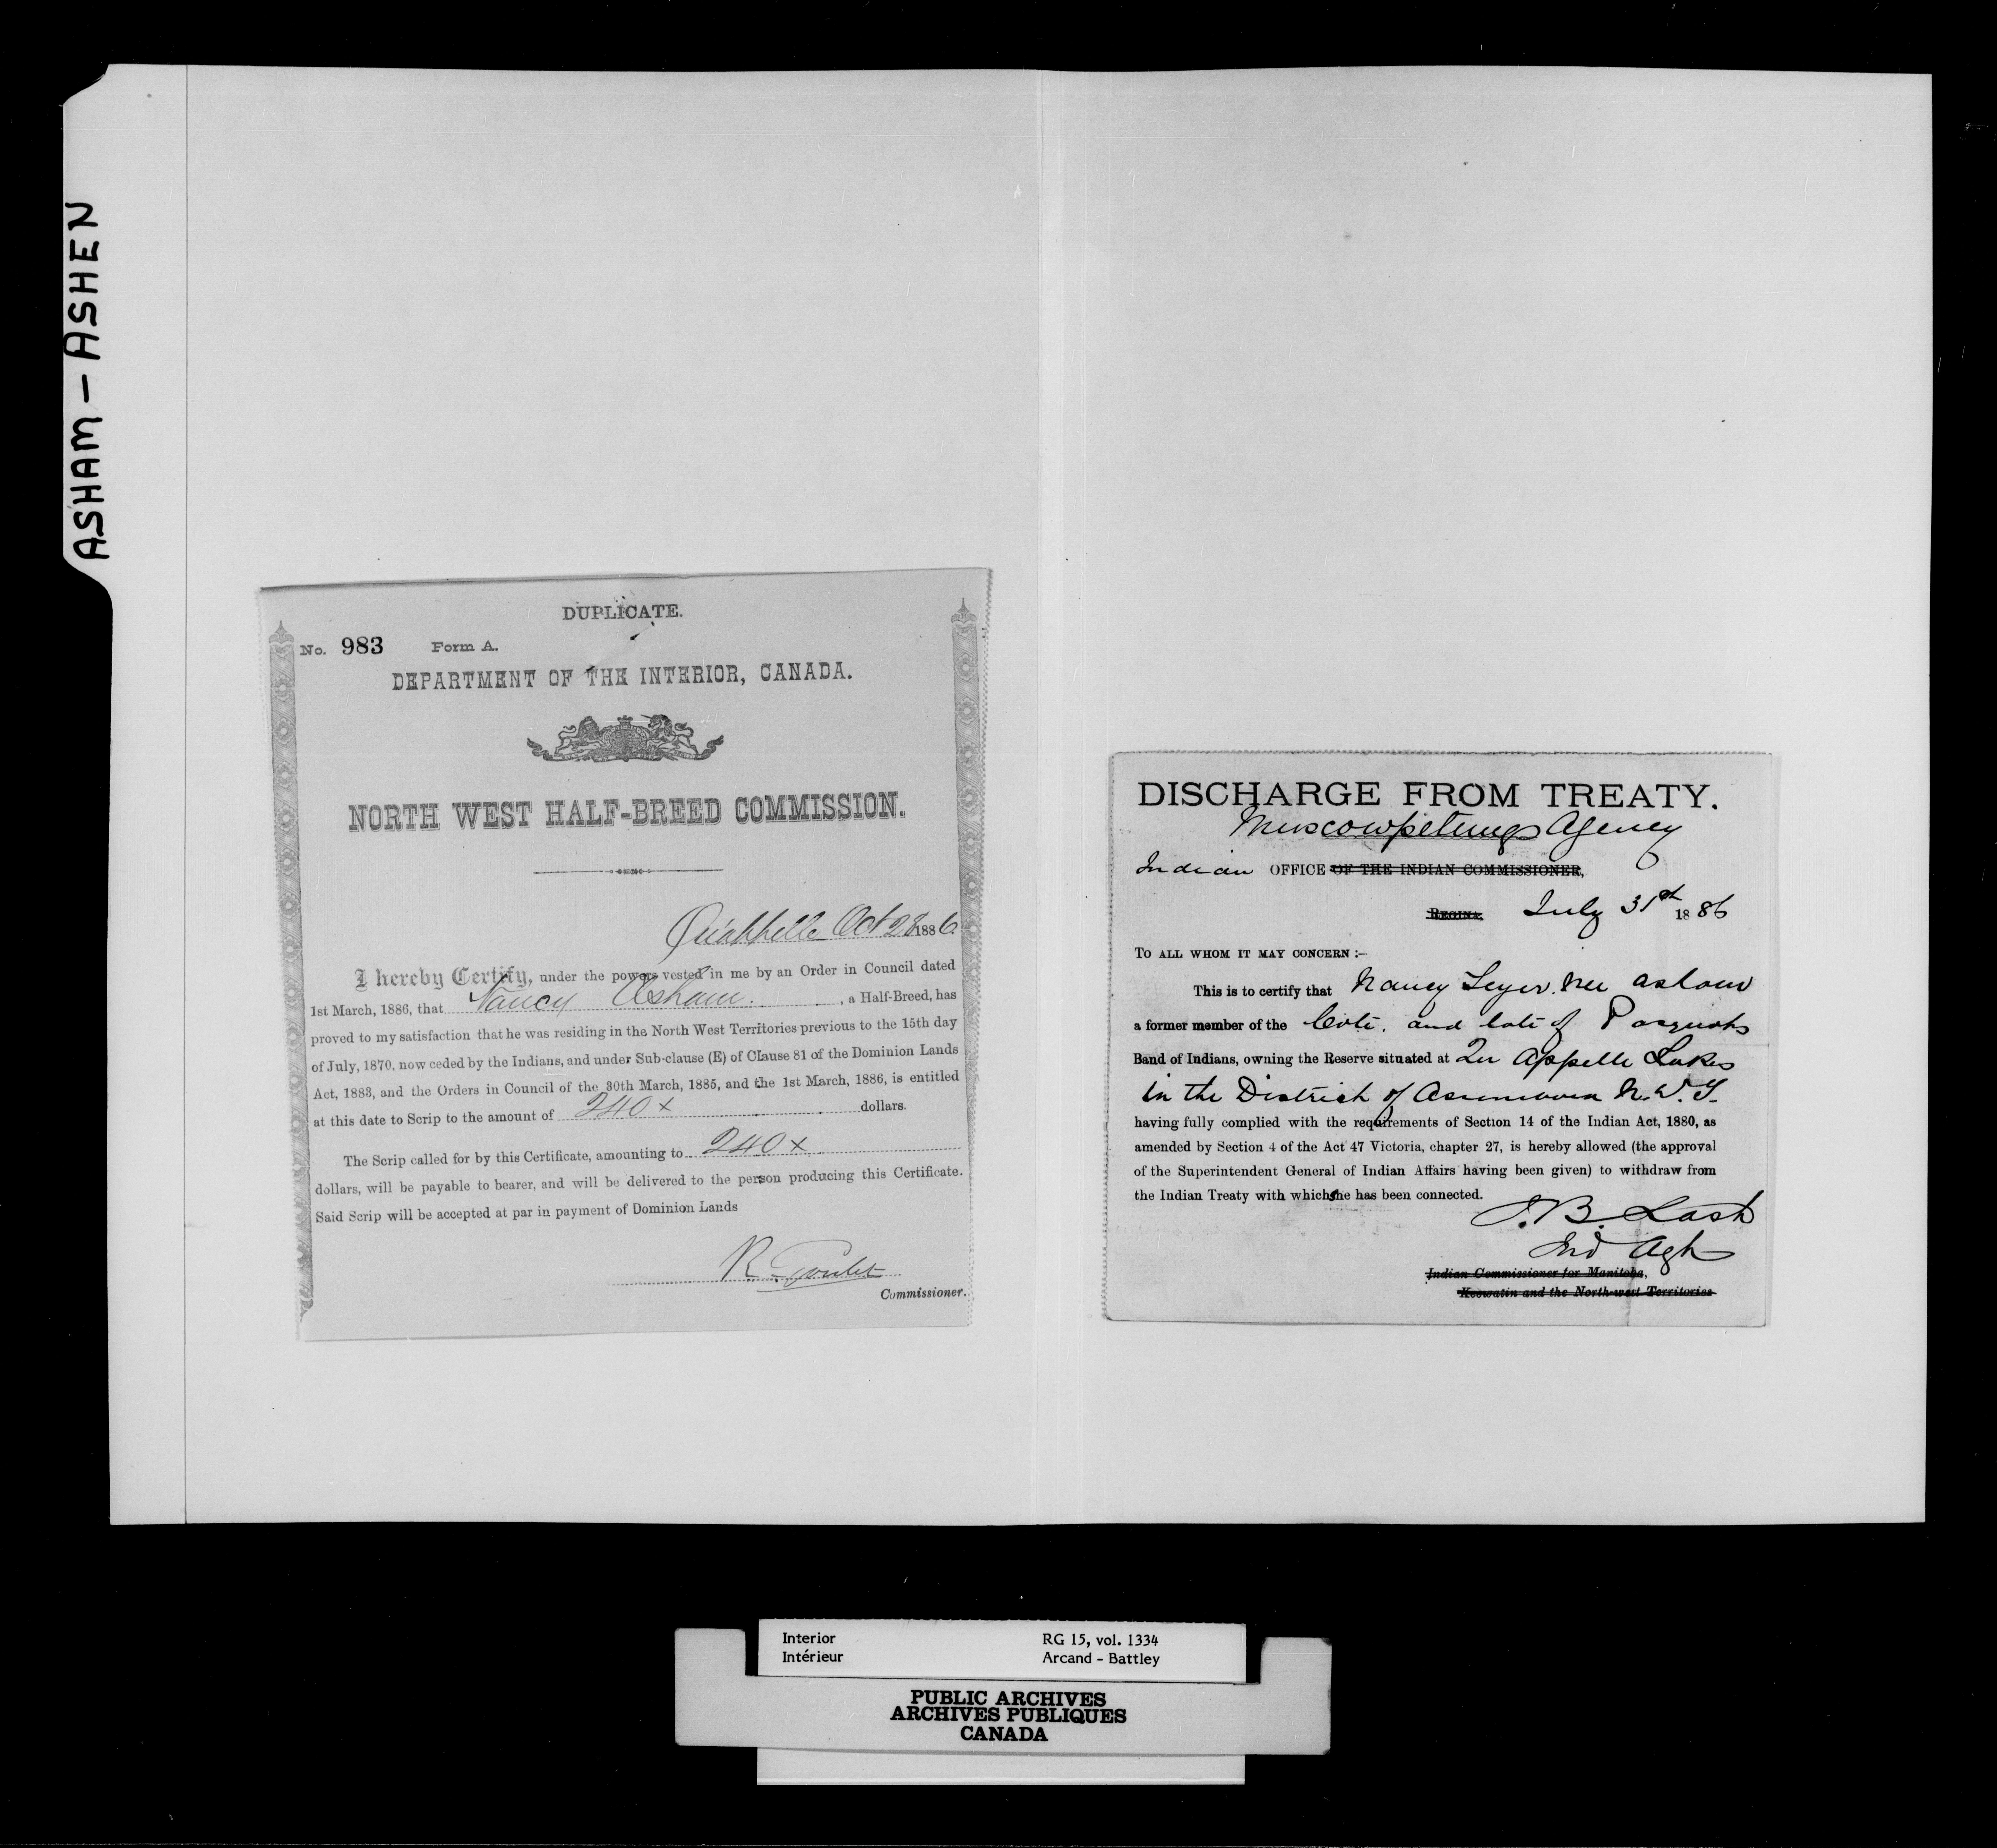 ASHAM - ASHEN
DUPLICATE.
No. 983 Form A.
DEPARTMENT OF THE INTERIOR, CANADA.
NORTH WEST HALF-BREED COMMISSION.
Qu'Appelle Oct 23 1886.
I hereby Certify, under the powers vested in me by an Order in Council dated
1st March, 1886, that Nancy Asham. , a Half-Breed, has
proved to my satisfaction that he was residing in the North West Territories previous to the 15th day
of July, 1870, now ceded by the Indians, and under Sub-clause (E) of Clause 81 of the Dominion Lands
Act, 1883, and the Orders in Council of the 30th March, 1885, and the 1st March, 1886, is entitled
at this date to Scrip to the amount of 240 x dollars.
The Scrip called for by this Certificate, amounting to 240 x
dollars, will be payable to bearer, and will be delivered to the person producing this Certificate.
Said Scrip will be accepted at par in payment of Dominion Lands
R. Goulet
Commissioner.
DISCHARGE FROM TREATY.
Muscowpetungs Agency
Indian OFFICE OF THE INDIAN COMMISSIONER,
REGINA, July 31st 1886
TO ALL WHOM IT MAY CONCERN :—
This is to certify that Nancy nee Asham
a former member of the Cote, and late of Pasquahs
Band of Indians, owning the Reserve situated at Qu Appelle Lakes
in the District of Assiniboia N.W.T.
having fully complied with the requirements of Section 14 of the Indian Act, 1880, as
amended by Section 4 of the Act 47 Victoria, chapter 27, is hereby allowed (the approval
of the Superintendent General of Indian Affairs having been given) to withdraw from
the Indian Treaty with which she has been connected.
J. B. Lash
Ind Agt
Indian Commissioner for Manitoba,
Keewatin and the North-west Territories
Interior RG 15, vol. 1334
Intérieur Arcand - Battley
PUBLIC ARCHIVES
ARCHIVES PUBLIQUES
CANADA